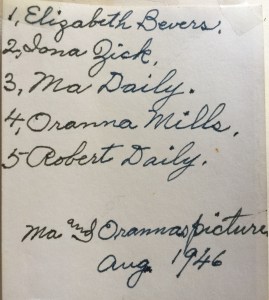 1, Elizabeth Bevers.
2, Iona Zick,
3, Ma Daily.
4, Oranna Mills,
5 Robert Daily.
Ma and Orannas picture
Aug. 1946